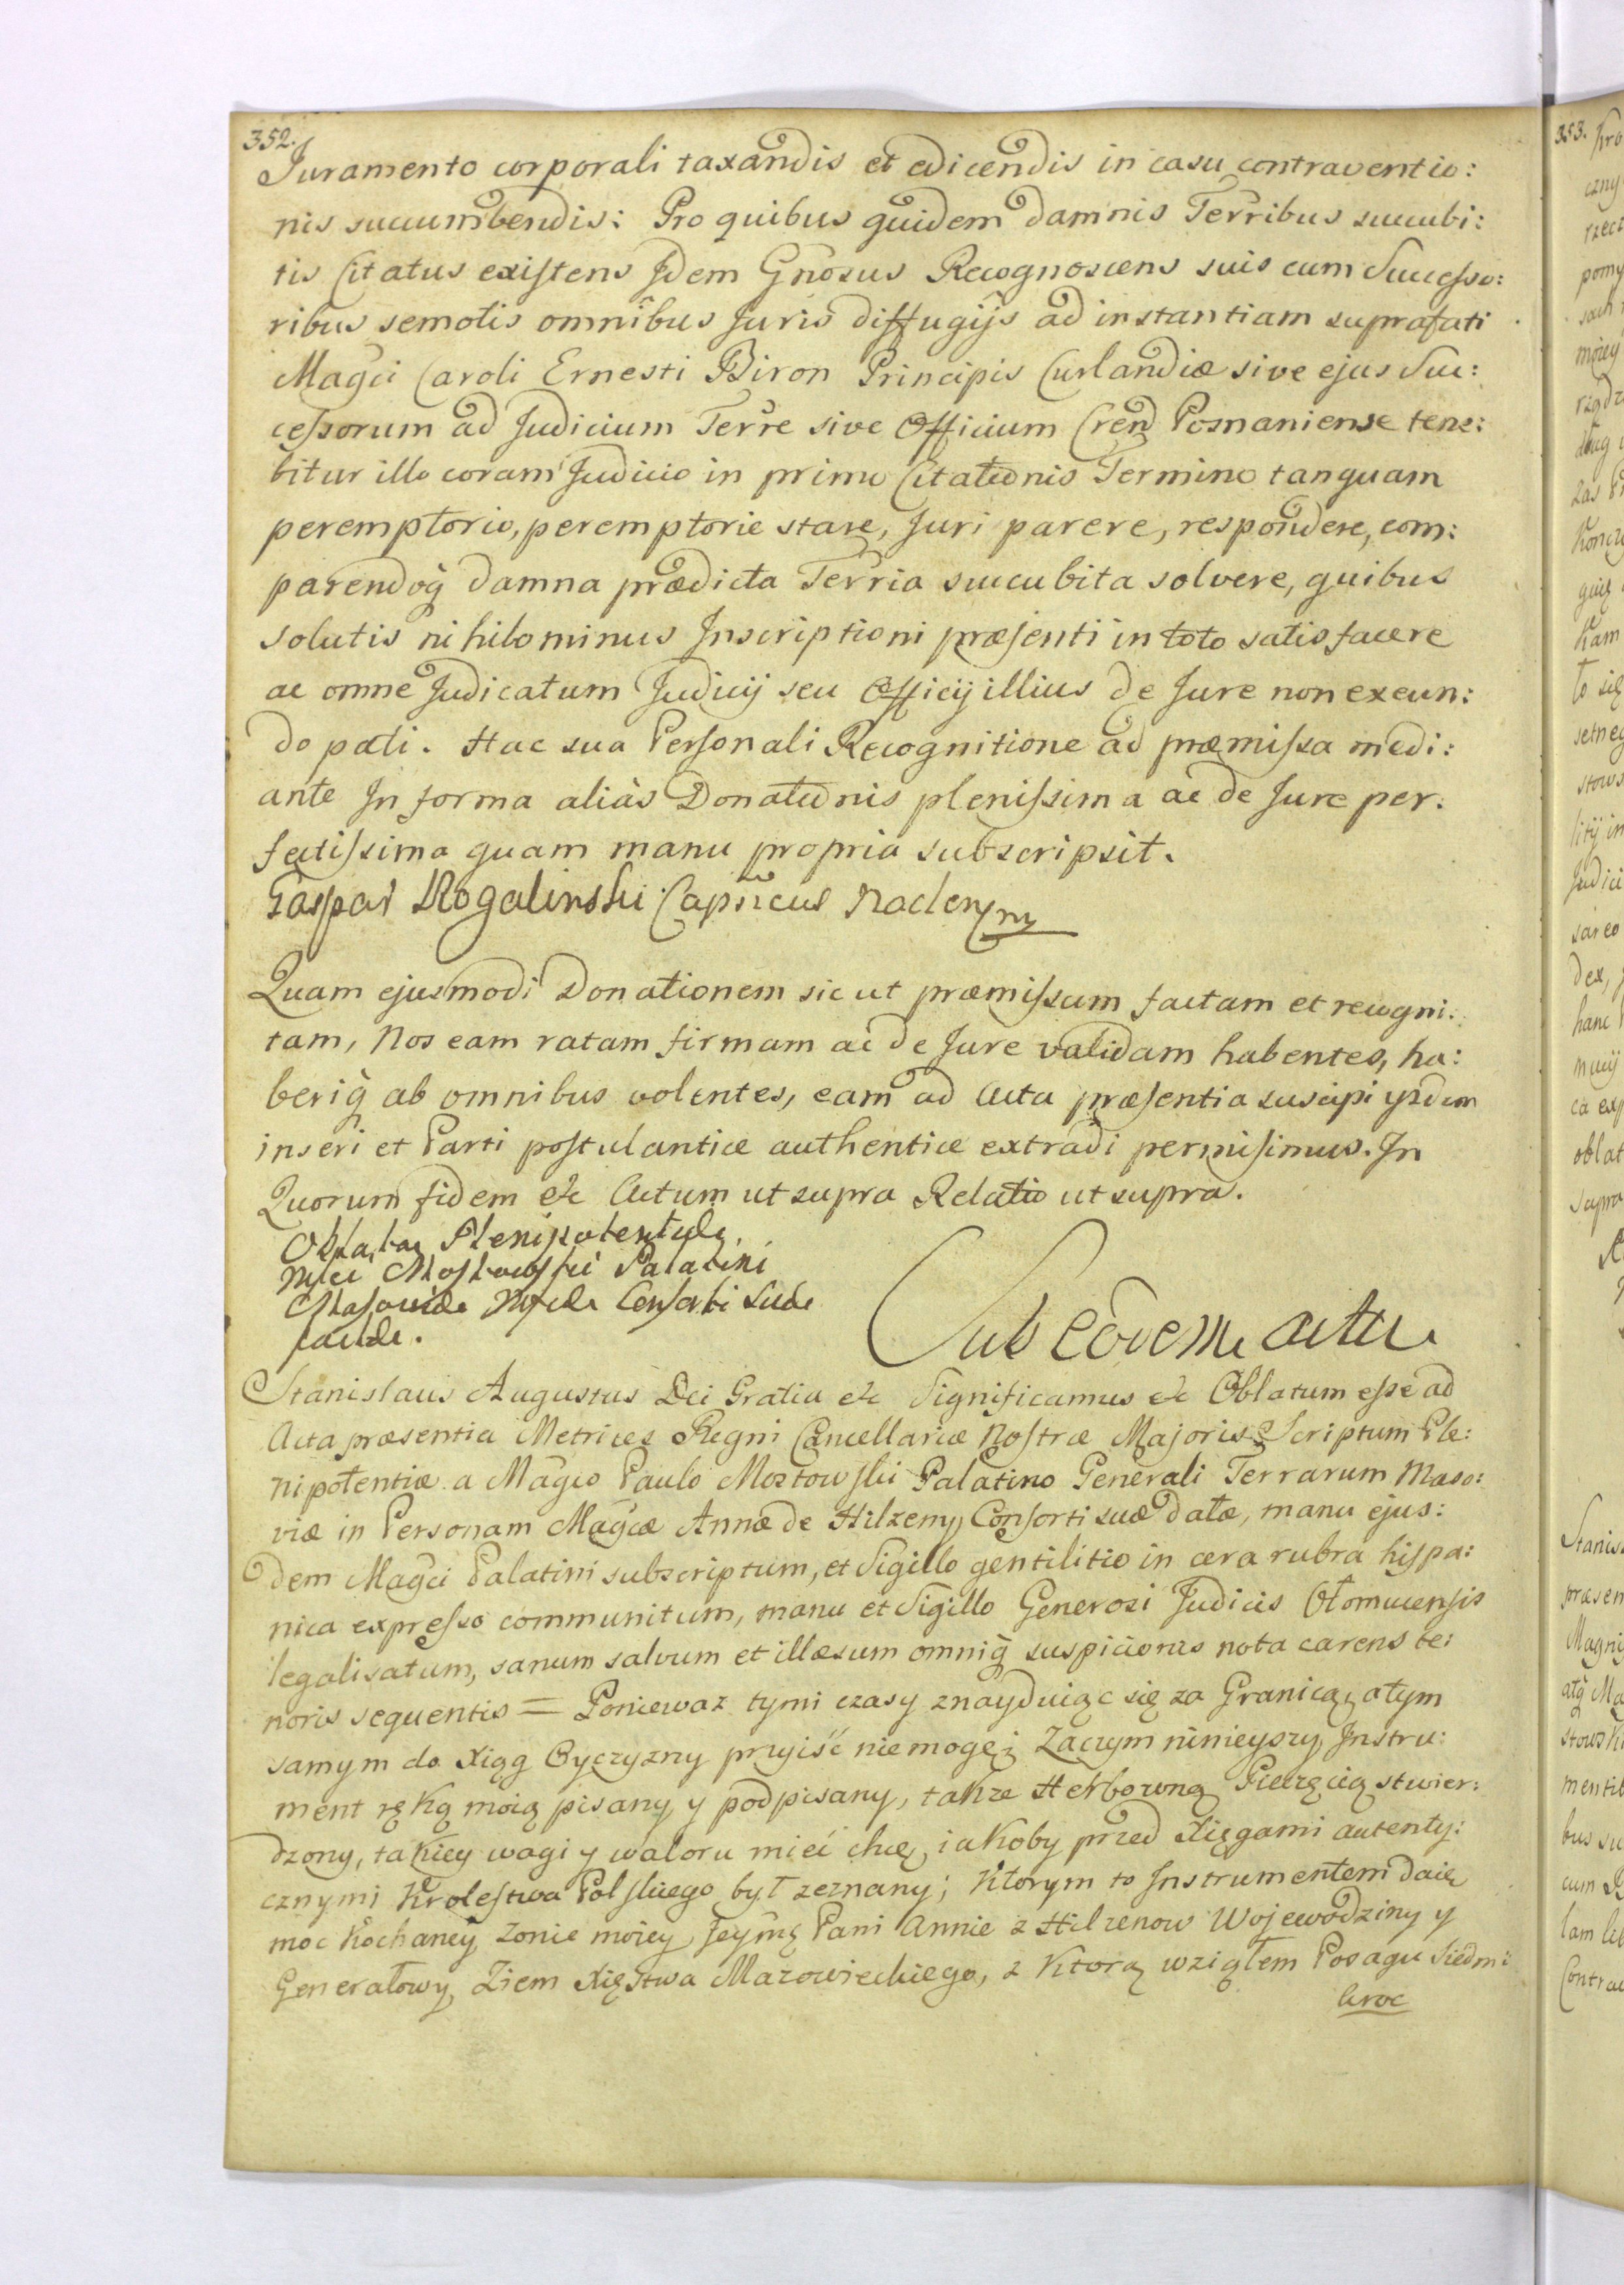 352.
Juramento corporali taxandis et edicendis in casu contraventio:
nis succumbendis: Pro quibus quidem damnis Terribus succubi:
tis Citatus existens Jdem Gnosus Recognoscens suis cum Successo:
ribus semotis omnibus Juris diffugijs ad instantiam suprafati
Magci Caroli Ernesti Biron Principis Curlandiæ sive ejus Suc:
cessorum ad Judicium Terre sive Officium Cren̄d Posnaniense tene:
bitur illo coram Judicio in primo Citationis Termino tanquam
peremptorio, peremptorie stare, Juri parere, respondere, com:
parendoq̃ damna prædicta Terria succubita solvere, quibus
solutis nihilominus Inscriptioni præsenti in toto satisfacere
ac omne Judicatum Judicij seu Officij illius de Jure non exeun:
do pati. Hac sua Personali Recognitione ad præmissa medi:
ante In forma alias Donationis plenissima ac de Jure per:
fectissima quam manu propria subscripsit.
Gaspar Rogalinski Capneus Naclen mp
Quam ejusmodi Donationem sic ut præmissum factam et recogni:
tam, Nos eam ratam firmam ac de Jure validam habentes, ha:
beriq̃ ab omnibus volentes, eam ad Acta præsentia suscipi ysdem
inseri et Parti postulantiæ authentice extradi permisimus. In
Quorum fidem &c Actum ut supra Relatio ut supra.
Oblata Plenipotentiæ
Mfci Mostowski Palatini
Masoviæ Mfcæ Consorti Suæ
Sub eodem actu
Stanislaus Augustus Dei Gratia &c Significamus &c Oblatum esse ad
Acta præsentia Metrices Regni Cancellariæ Nostræ Majoris Scriptum Ple:
nipotentiæ a Magco Paulo Mostowski Palatino Generali Terrarum Maso:
viæ in Personam Magcæ Annæ de Hilzeny Consorti suæ datæ, manu ejus:
dem Magci Palatini subscriptum, et Sigillo gentilitio in cera rubra hispa:
nica expresso communitum, manu et Sigillo Generosi Judicis Otomucensis
legalisatum, sanum salvum et illæsum omniq̃ suspicionis nota carens te:
noris sequentis = Poniewaz tymi czasy znayduiąc się za Granicą, a tym
samym do Xiąg Oyczyzny przyiść niemogę; Zaczym ninieyszy Instru:
ment ręką moią pisany y podpisany, takze Herbowną Pieczęcią stwier:
dzony, takiey wagi y waloru mieć chcę, iakoby przed Xięgami autenty:
cznymi Krolestwa Polskiego był zeznany; Ktorym to Instrumentem daię
moc Kochaney Zonie moiey Jeymę Pani Annie z Hilzenow Wojewodziny y
Generałowy Ziem Xięstwa Mazowieckiego, z Ktorą wziąłem Posagu Siedm:
kroc